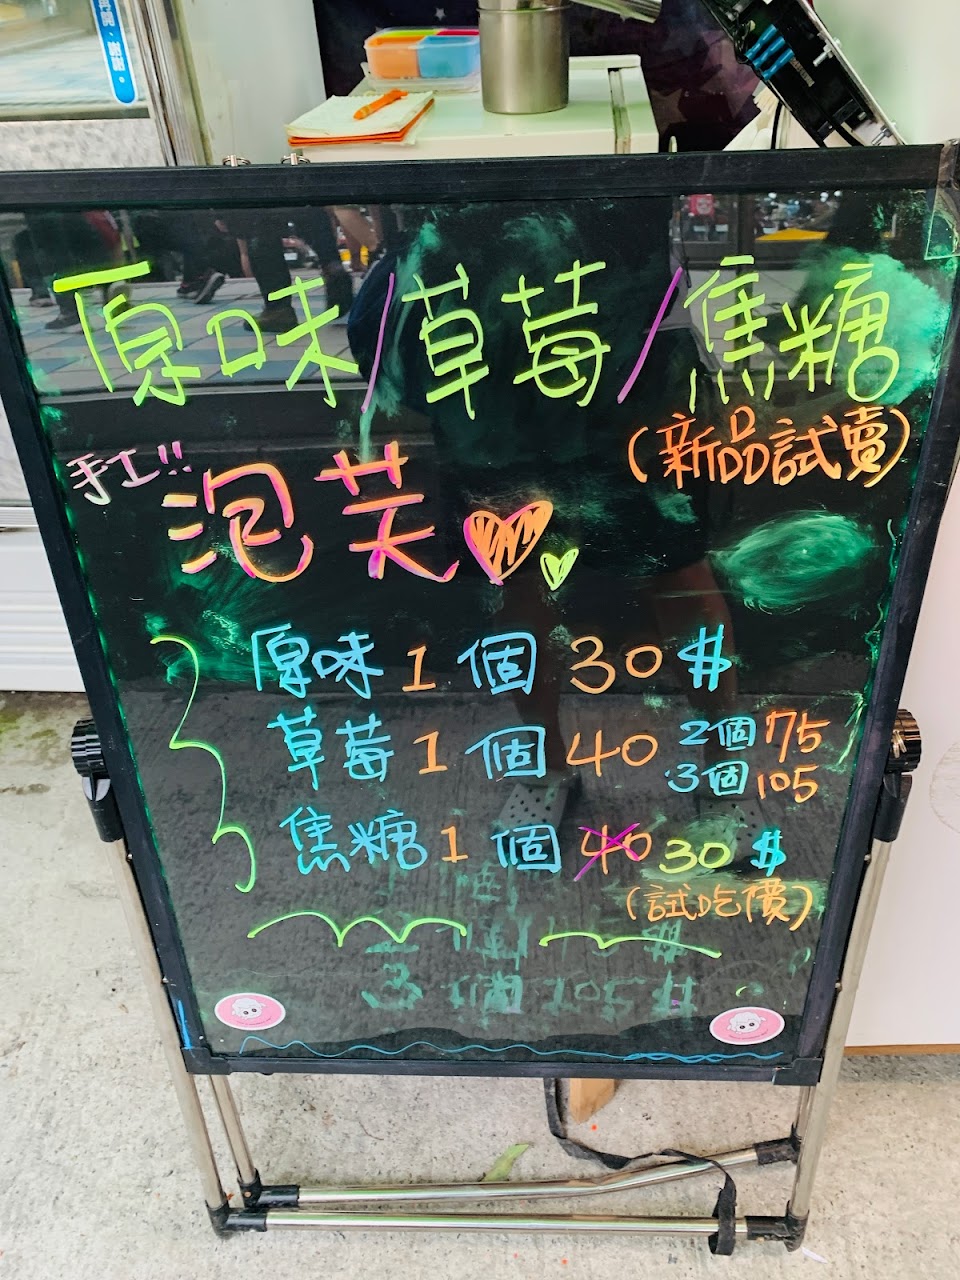 再開，謝謝。
原味/草莓/焦糖
(新品試賣)
手工!!
泡芙
原味1個30$
草莓1個40 2個75
3個105
焦糖1個40 30$
(試吃價)